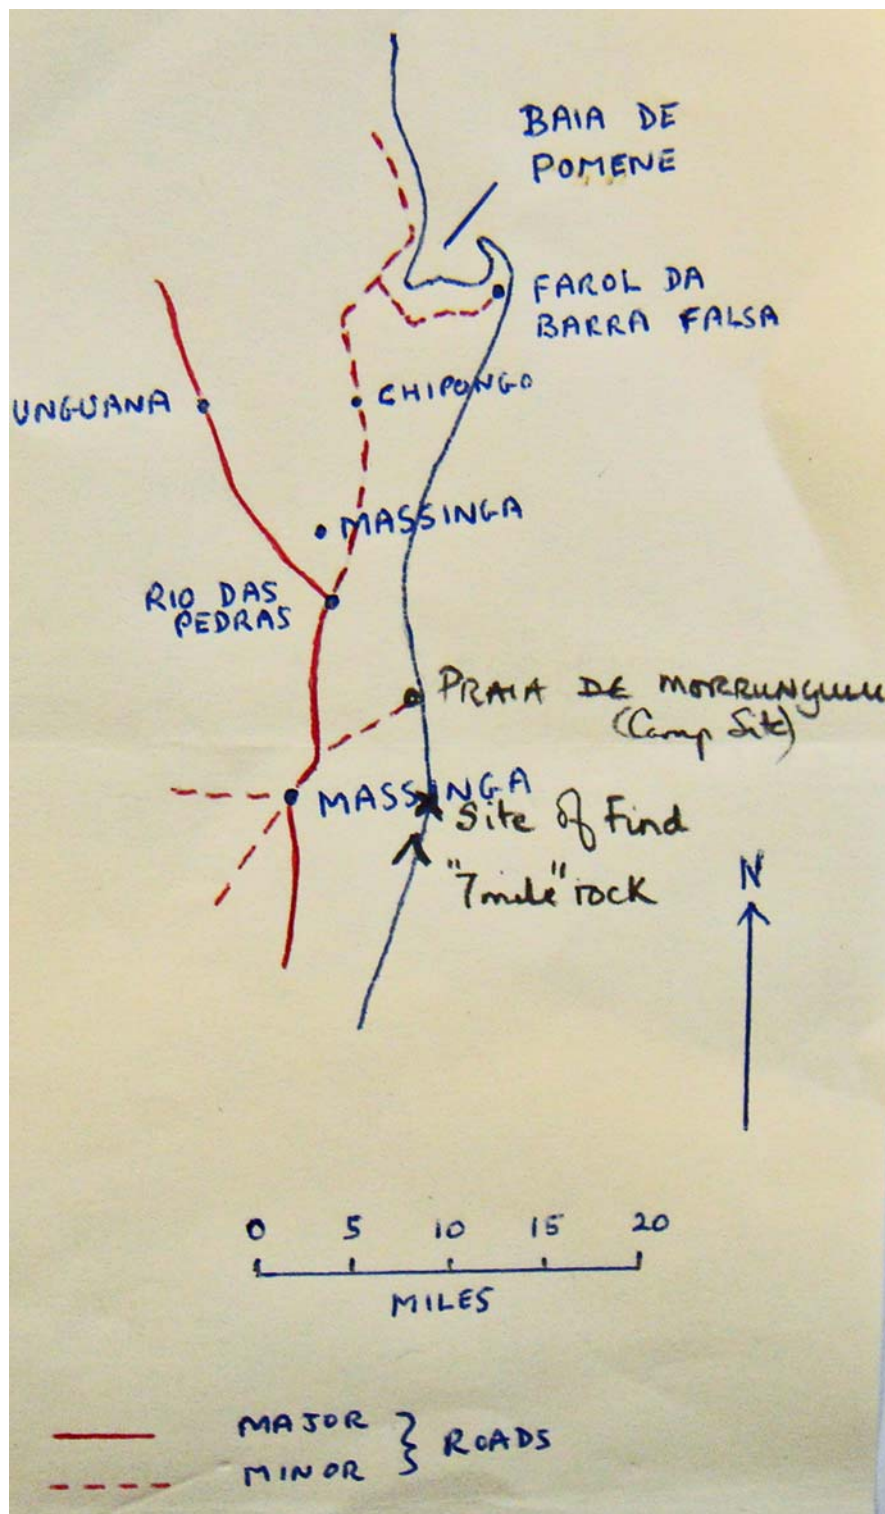 BAIA DE
POMENE
FAROL DA
BARRA FALSA
UNGUANA
CHIPONGO
MASSINGA
RIO DAS
PEDRAS
PRAIA DE MORRUNGULU
(Camp Site)
MASSINGA
Site of Find
"7 mile" rock
N
0 5 10 15 20
MILES
MAJOR
MINOR
ROADS